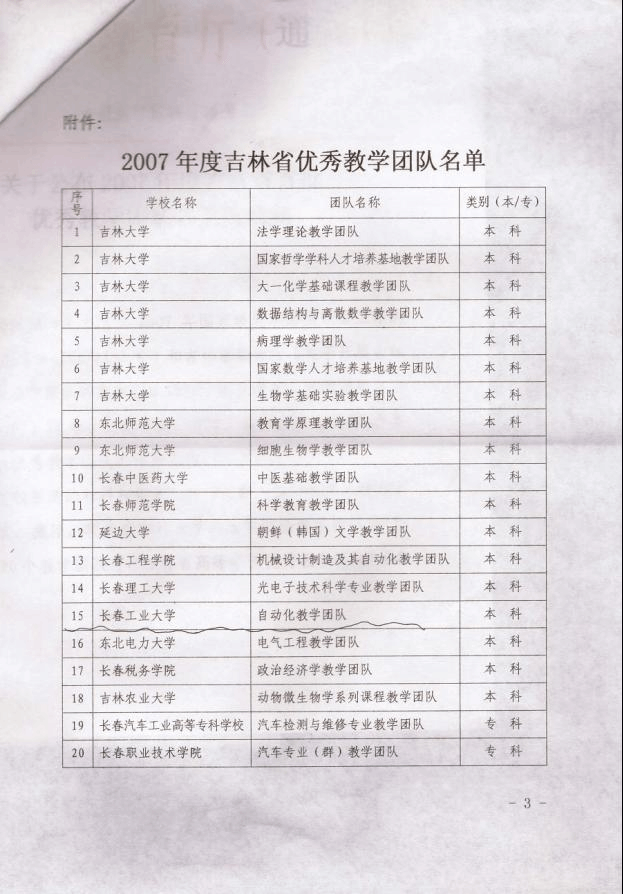 附件:
2007 年度吉林省优秀教学团队名单
序号 学校名称 团队名称 类别（本/专）
1 吉林大学 法学理论教学团队 本 科
2 吉林大学 国家哲学学科人才培养基地教学团队 本 科
3 吉林大学 大一化学基础课程教学团队 本 科
4 吉林大学 数据结构与离散数学教学团队 本 科
5 吉林大学 病理学教学团队 本 科
6 吉林大学 国家数学人才培养基地教学团队 本 科
7 吉林大学 生物学基础实验教学团队 本 科
8 东北师范大学 教育学原理教学团队 本 科
9 东北师范大学 细胞生物学教学团队 本 科
10 长春中医药大学 中医基础教学团队 本 科
11 长春师范学院 科学教育教学团队 本 科
12 延边大学 朝鲜（韩国）文学教学团队 本 科
13 长春工程学院 机械设计制造及其自动化教学团队 本 科
14 长春理工大学 光电子技术科学专业教学团队 本 科
15 长春工业大学 自动化教学团队 本 科
16 东北电力大学 电气工程教学团队 本 科
17 长春税务学院 政治经济学教学团队 本 科
18 吉林农业大学 动物微生物学系列课程教学团队 本 科
19 长春汽车工业高等专科学校 汽车检测与维修专业教学团队 专 科
20 长春职业技术学院 汽车专业（群）教学团队 专 科
- 3 -